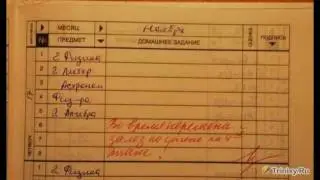 МЕСЯЦ Ноябрь
ПРЕДМЕТ ДОМАШНЕЕ ЗАДАНИЕ ОЦЕНКА ПОДПИСЬ
1 2 Физика
2 2 Литер
3 Астроном
4 Физ-ра
5 2 Алгебра Во время перемены
6 залез по стене на 4
этаж.
1 2 Физика
Trinixy.Ru